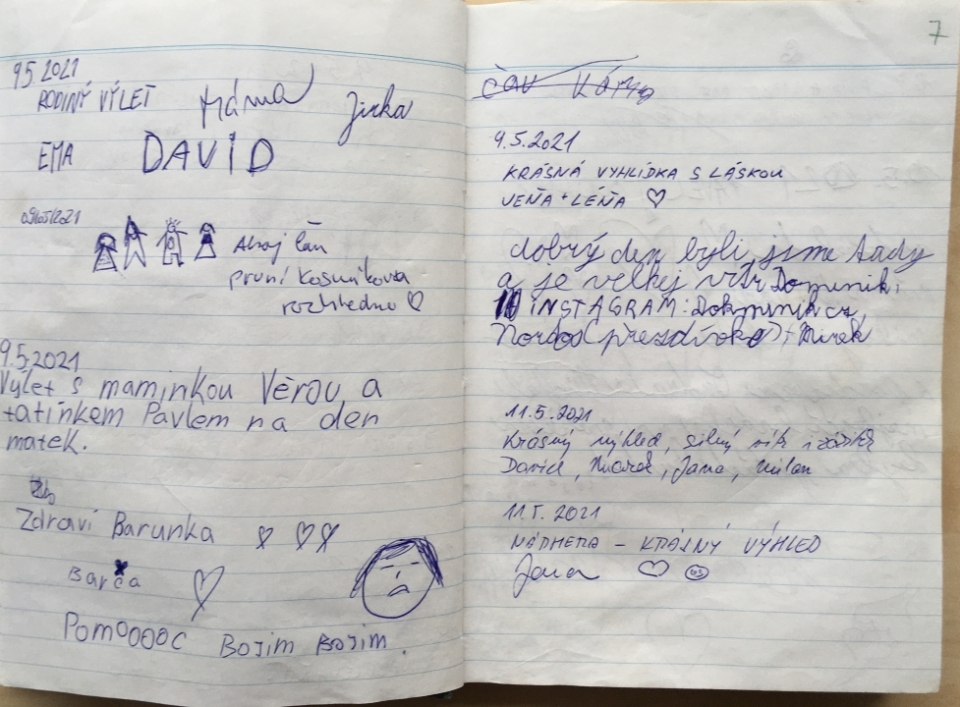 9.5.2021
RODINÝ VÝLET Máma Jirka
EMA DAVID
09/05/2021
Ahoj
první
rozhledna
9.5.2021
Výlet s maminkou Věrou a
tatínkem Pavlem na den
matek.
Zdraví Barunka
Barča
Pomooooc Bojim Bojim.
7
ČAU
9.5.2021
KRÁSNÁ VYHLÍDKA S LÁSKOU
VEŇA + LÉŇA
dobrý den byli jsme tady
a je velkej vítr Dominik:
INSTAGRAM: Dokminikcz,
(přezdívka) + Mirek
11.5.2021
Krásný výhled, silný
David, Marek, Jana, Milan
11.5.2021
NÁDHERA – KRÁSNÝ VÝHLED
Jana